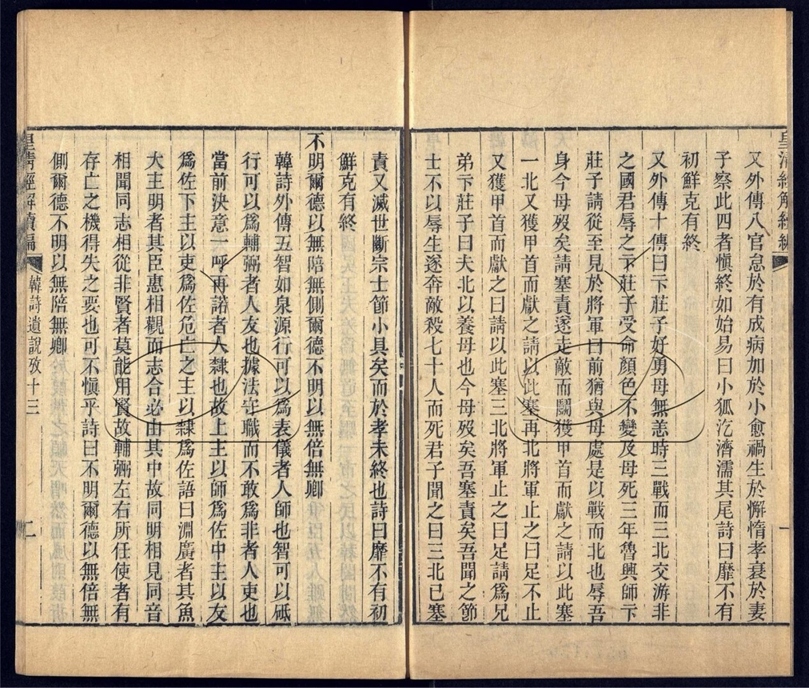 皇清經解續編
一
又外傳八官怠於有成病加於小愈禍生於懈惰孝衰於妻
子察此四者愼終如始易曰小狐汔濟濡其尾詩曰靡不有
初鮮克有終
又外傳十傳曰卞莊子好勇母無恙時三戰而三北交游非
之國君辱之卞莊子受命顏色不變及母死三年魯興師卞
莊子請從至見於將軍曰前猶與母處是以戰而北也辱吾
身今母歿矣請塞責遂走敵而鬭獲甲首而獻之請以此塞
一北又獲甲首而獻之請以此塞再北將軍止之曰足不止
又獲甲首而獻之曰請以此塞三北將軍止之曰足請爲兄
弟卞莊子曰夫北以養母也今母歿矣吾塞責矣吾聞之節
士不以辱生遂奔敵殺七十人而死君子聞之曰三北已塞
責又滅世斷宗士節小具矣而於孝未終也詩曰靡不有初
鮮克有終
不明爾德以無陪無側爾德不明以無倍無卿
韓詩外傳五智如泉源行可以爲表儀者人師也智可以砥
行可以爲輔弼者人友也據法守職而不敢爲非者人吏也
當前決意一呼再諾者人隸也故上主以師爲佐中主以友
爲佐下主以吏爲佐危亡之主以隸爲佐語曰淵廣者其魚
大主明者其臣惠相觀而志合必由其中故同明相見同音
相聞同志相從非賢者莫能用賢故輔弼左右所任使者有
存亡之機得失之要也可不愼乎詩曰不明爾德以無倍無
側爾德不明以無陪無卿
皇淸經解續編
韓詩遺說攷十三
二